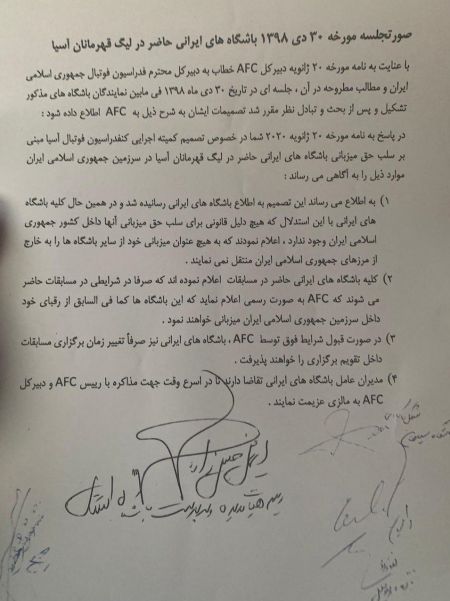 صورتجلسه مورخه ۳۰ دی ۱۳۹۸ باشگاه های ایرانی حاضر در لیگ قهرمانان آسیا
با عنایت به نامه مورخه ۲۰ ژانویه دبیرکل AFC خطاب به دبیرکل محترم فدراسیون فوتبال جمهوری اسلامی
ایران و مطالب مطروحه در آن ، جلسه ای در تاریخ ۳۰ دی ماه ۱۳۹۸ فی مابین نمایندگان باشگاه های مذکور
تشکیل و پس از بحث و تبادل نظر مقرر شد تصمیمات ایشان به شرح ذیل به AFC اطلاع داده شود :
در پاسخ به نامه مورخه ۲۰ ژانویه ۲۰۲۰ شما در خصوص تصمیم کمیته اجرایی کنفدراسیون فوتبال آسیا مبنی
بر سلب حق میزبانی باشگاه های ایرانی حاضر در لیگ قهرمانان آسیا در سرزمین جمهوری اسلامی ایران
موارد ذیل را به آگاهی می رساند :
۱) به اطلاع می رساند این تصمیم به اطلاع باشگاه های ایرانی رسانیده شد و در همین حال کلیه باشگاه
های ایرانی با این استدلال که هیچ دلیل قانونی برای سلب حق میزبانی آنها داخل کشور جمهوری
اسلامی ایران وجود ندارد ، اعلام نمودند که به هیچ عنوان میزبانی خود از سایر باشگاه ها را به خارج
از مرزهای جمهوری اسلامی ایران منتقل نمی نمایند .
۲) کلیه باشگاه های ایرانی حاضر در مسابقات اعلام نموده اند که صرفا در شرایطی در مسابقات حاضر
می شوند که AFC به صورت رسمی اعلام نماید که این باشگاه ها کما فی السابق از رقبای خود
داخل سرزمین جمهوری اسلامی ایران میزبانی خواهند نمود .
۳) در صورت قبول شرایط فوق توسط AFC ، باشگاه های ایرانی نیز صرفاً تغییر زمان برگزاری مسابقات
داخل تقویم برگزاری را خواهند پذیرفت .
۴) مدیران عامل باشگاه های ایرانی تقاضا دارند تا در اسرع وقت جهت مذاکره با رییس AFC و دبیرکل
AFC به مالزی عزیمت نمایند .